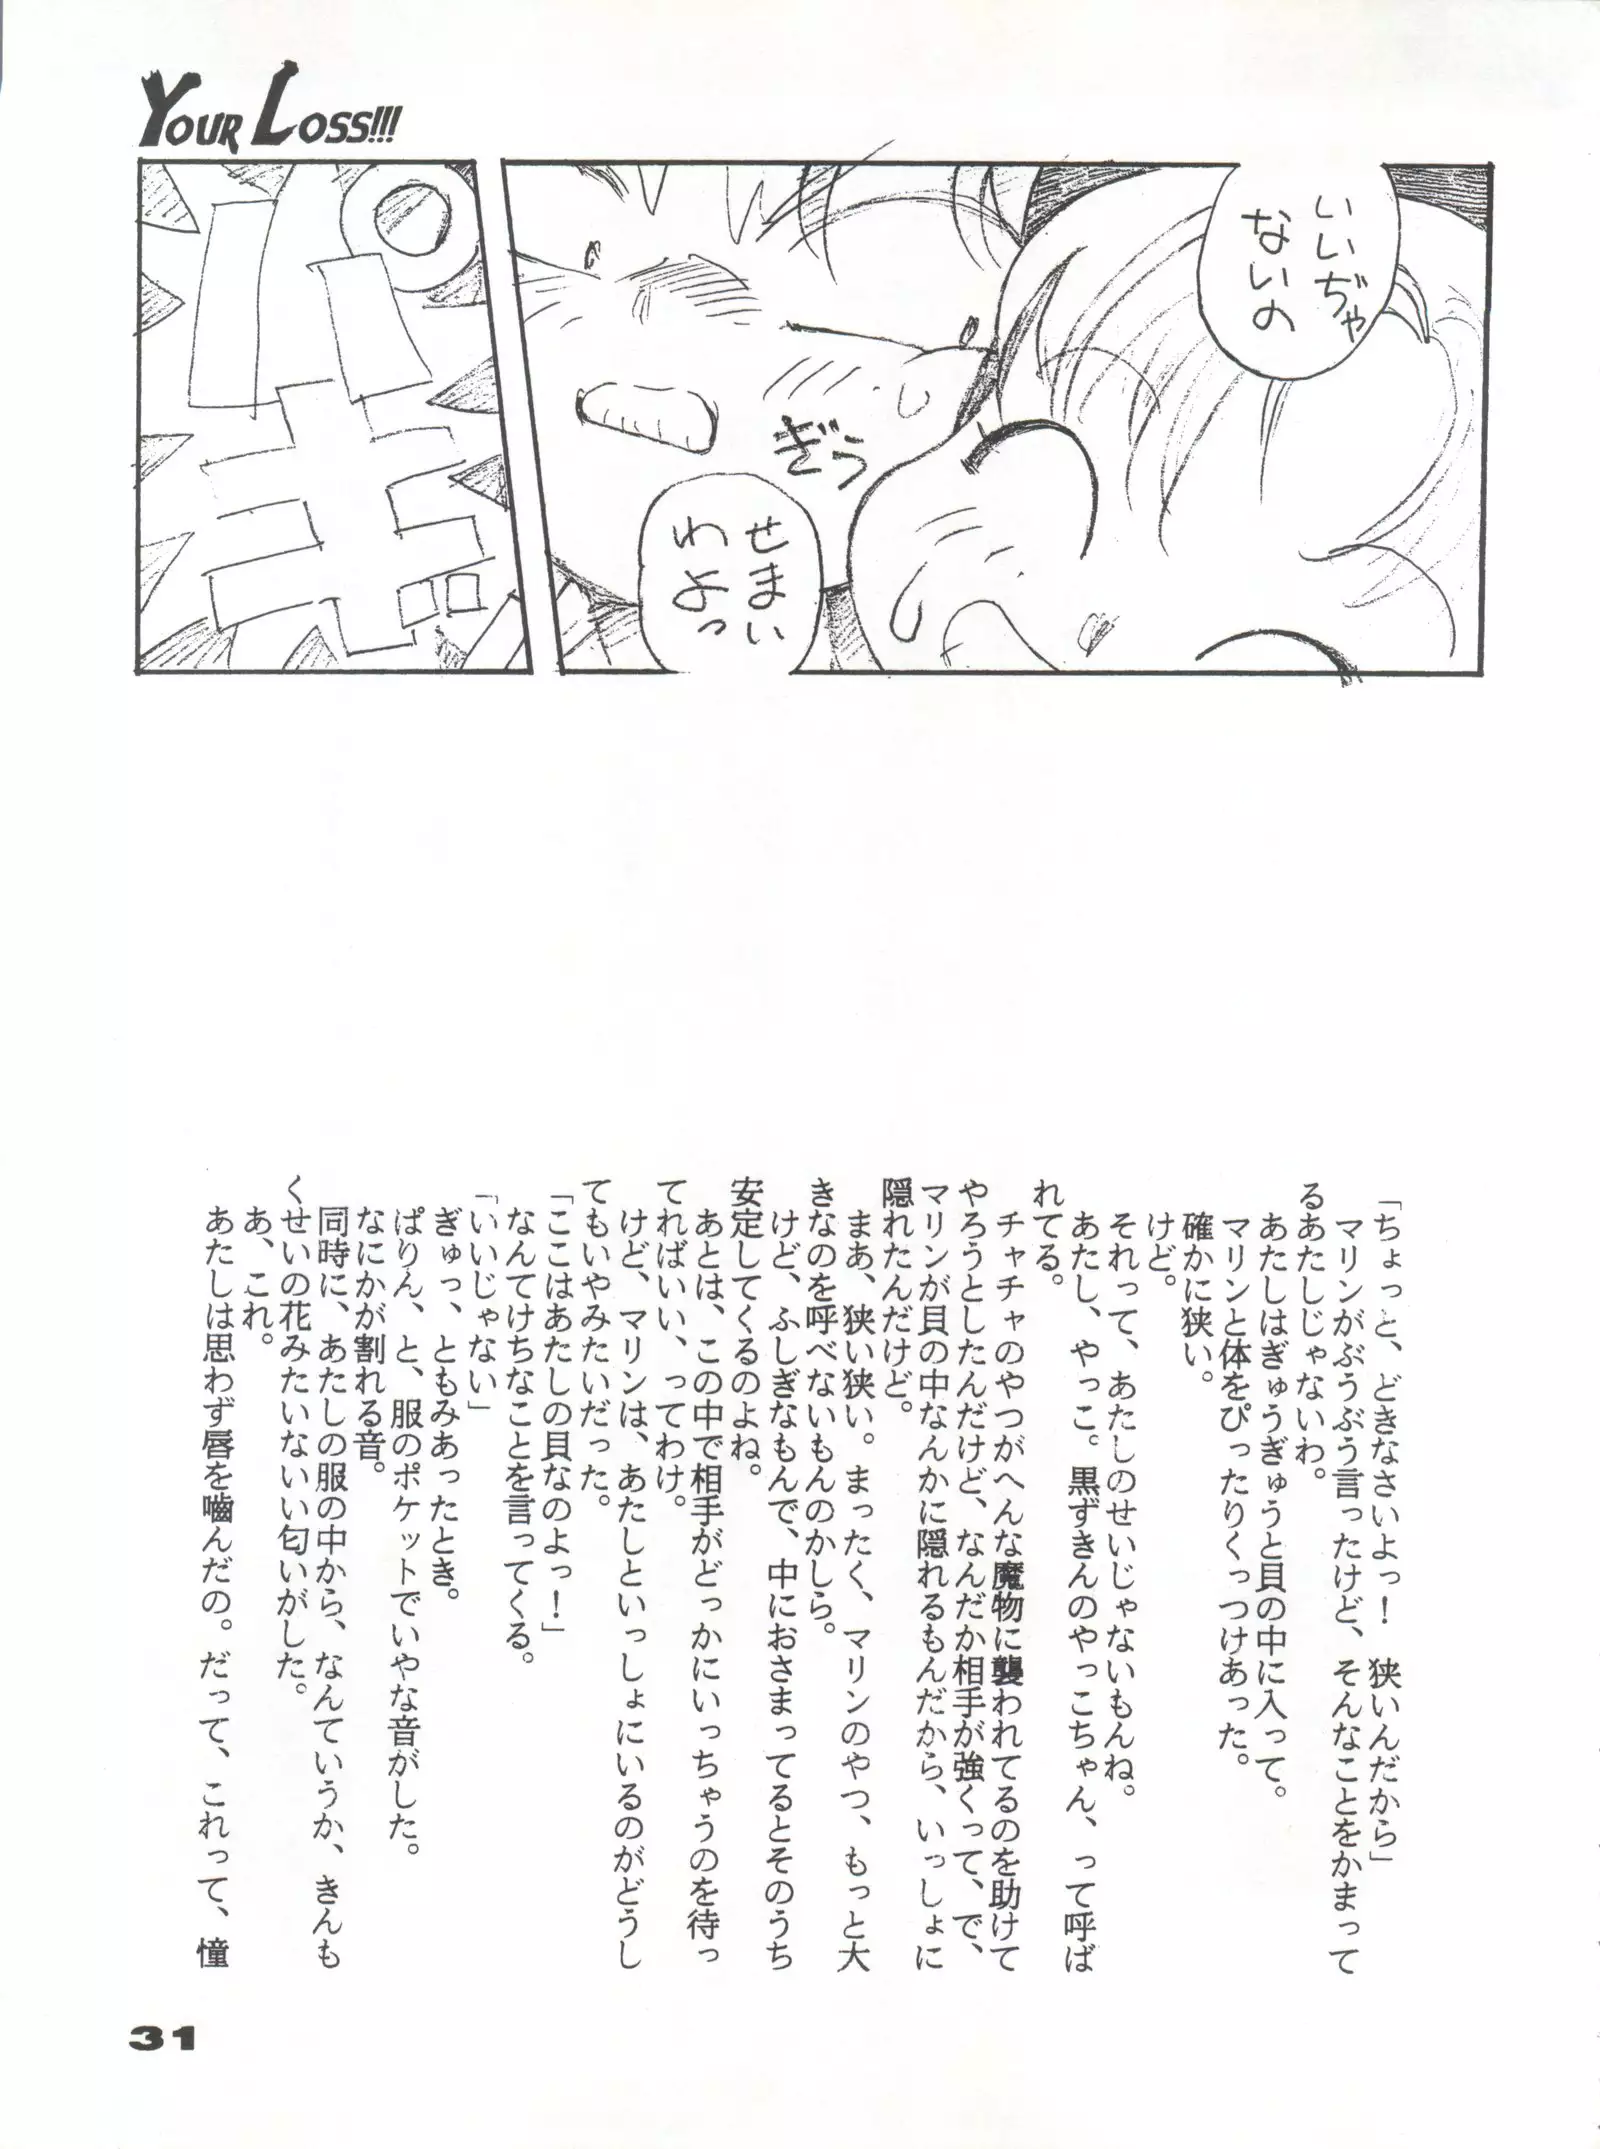 YOUR LOSS!!!
いいぢゃ
ないの
ぎう
せまい
わよっ
「ちょっと、どきなさいよっ！　狭いんだから」
マリンがぶうぶう言ったけど、そんなことをかまって
るあたしじゃないわ。
あたしはぎゅうぎゅうと貝の中に入って。
マリンと体をぴったりくっつけあった。
確かに狭い。
けど。
それって、あたしのせいじゃないもんね。
あたし、やっこ。黒ずきんのやっこちゃん、って呼ば
れてる。
チャチャのやつがへんな魔物に襲われてるのを助けて
やろうとしたんだけど、なんだか相手が強くって、で、
マリンが貝の中なんかに隠れるもんだから、いっしょに
隠れたんだけど。
まあ、狭い狭い。まったく、マリンのやつ、もっと大
きなのを呼べないもんのかしら。
けど、ふしぎなもんで、中におさまってるとそのうち
安定してくるのよね。
あとは、この中で相手がどっかにいっちゃうのを待っ
てればいい、ってわけ。
けど、マリンは、あたしといっしょにいるのがどうし
てもいやみたいだった。
「ここはあたしの貝なのよっ！」
なんてけちなことを言ってくる。
「いいじゃない」
ぎゅっ、ともみあったとき。
ぱりん、と、服のポケットでいやな音がした。
なにかが割れる音。
同時に、あたしの服の中から、なんていうか、きんも
くせいの花みたいないい匂いがした。
あ、これ。
あたしは思わず唇を嚙んだの。だって、これって、憧
31